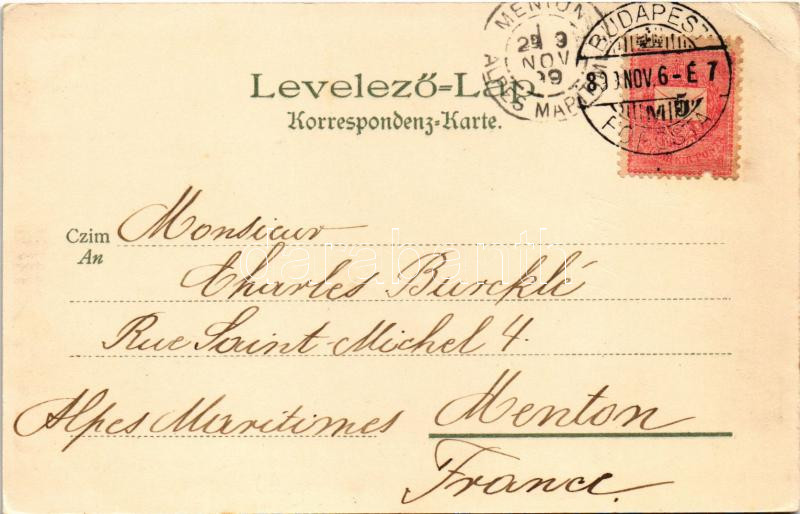 MENTON
2E 9
NOV
99
ALPES MARITIMES
BUDAPEST
899 NOV. 6 - É 7
FŐPOSTA
5
Levelező-Lap.
Korrespondenz-Karte.
Czim Monsieur
An
Charles Burcklé
Rue Saint-Michel 4.
Alpes Maritimes Menton
France.
darabanth